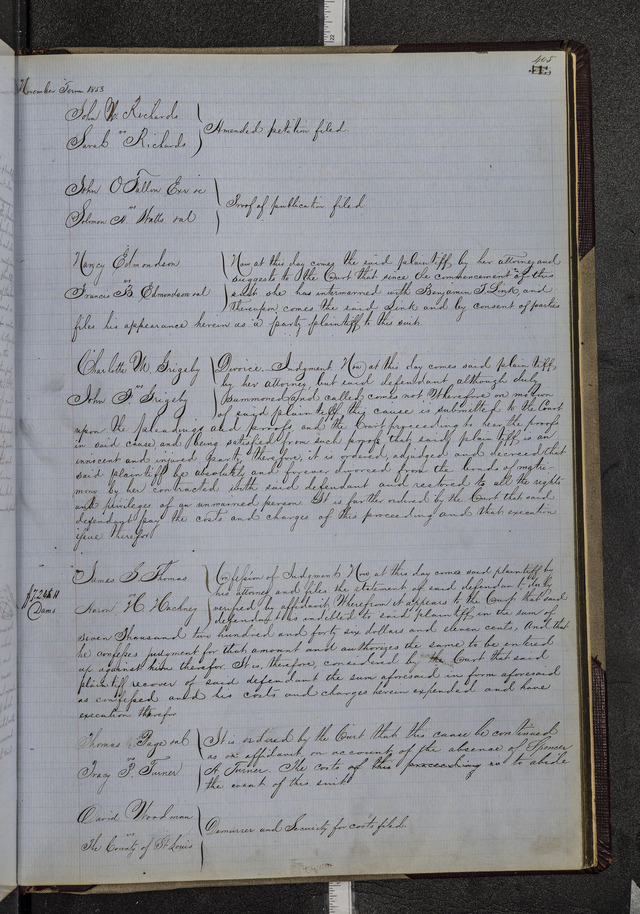 405
November Term 1853
John W. Richards
vs
Sarah Richards
Amended petition filed.
John O'Fallon Exr &c
vs
Solomon N. Watts et al
Proof of publication filed.
Nancy Edmondson
vs
Francis B. Edmondson et al
Now at this day comes the said plaintiff by her attorney and
suggests to the Court that since the commencement of this
suit she has intermarried with Benjamin T. Link and
thereupon comes the said Link and by consent of parties
files his appearance herein as a party plaintiff to this suit.
Charlotte M. Grigsby
vs
John P. Grigsby
Divorce. Judgment Now at this day comes said plaintiff
by her attorney, but said defendant although duly
summoned and called comes not Wherefore on motion
of said plaintiff, this cause is submitted to the Court
upon the pleadings and proofs, and the Court proceeding to hear the proofs
in said cause and being satisfied from such proofs that said plaintiff is an
innocent and injured party, therefore, it is ordered, adjudged and decreed that
said plaintiff be absolutely and forever divorced from the bonds of matri-
mony by her contracted with said defendant and restored to all the rights
and privileges of an unmarried person It is further ordered by the Court that said
defendant pay the costs and charges of this proceeding and that execution
issue therefor
$7,246.11
Dams
James S. Thomas
vs
Aaron H. Hackney
Confession of Judgment. Now at this day comes said plaintiff by
his attorney and files the statement of said defendant duly
verified by affidavit Wherefrom it appears to the Court that said
defendant is indebted to said plaintiff in the sum of
seven thousand two hundred and forty six dollars and eleven cents, And that
he confesses judgment for that amount and authorizes the same to be entered
up against him therefor It is, therefore, considered by the Court that said
plaintiff recover of said defendant the sum aforesaid in form aforesaid
as confessed and his costs and charges herein expended and have
execution therefor
Thomas Page et al
vs
Tracy P. Turner
It is ordered by the Court that this cause be continued
as on affidavit on account of the absence of Spencer
A. Turner. The costs of this proceeding to abide
the event of this suit
David Woodman
vs
The County of St Louis
Demurrer and Security for costs filed.